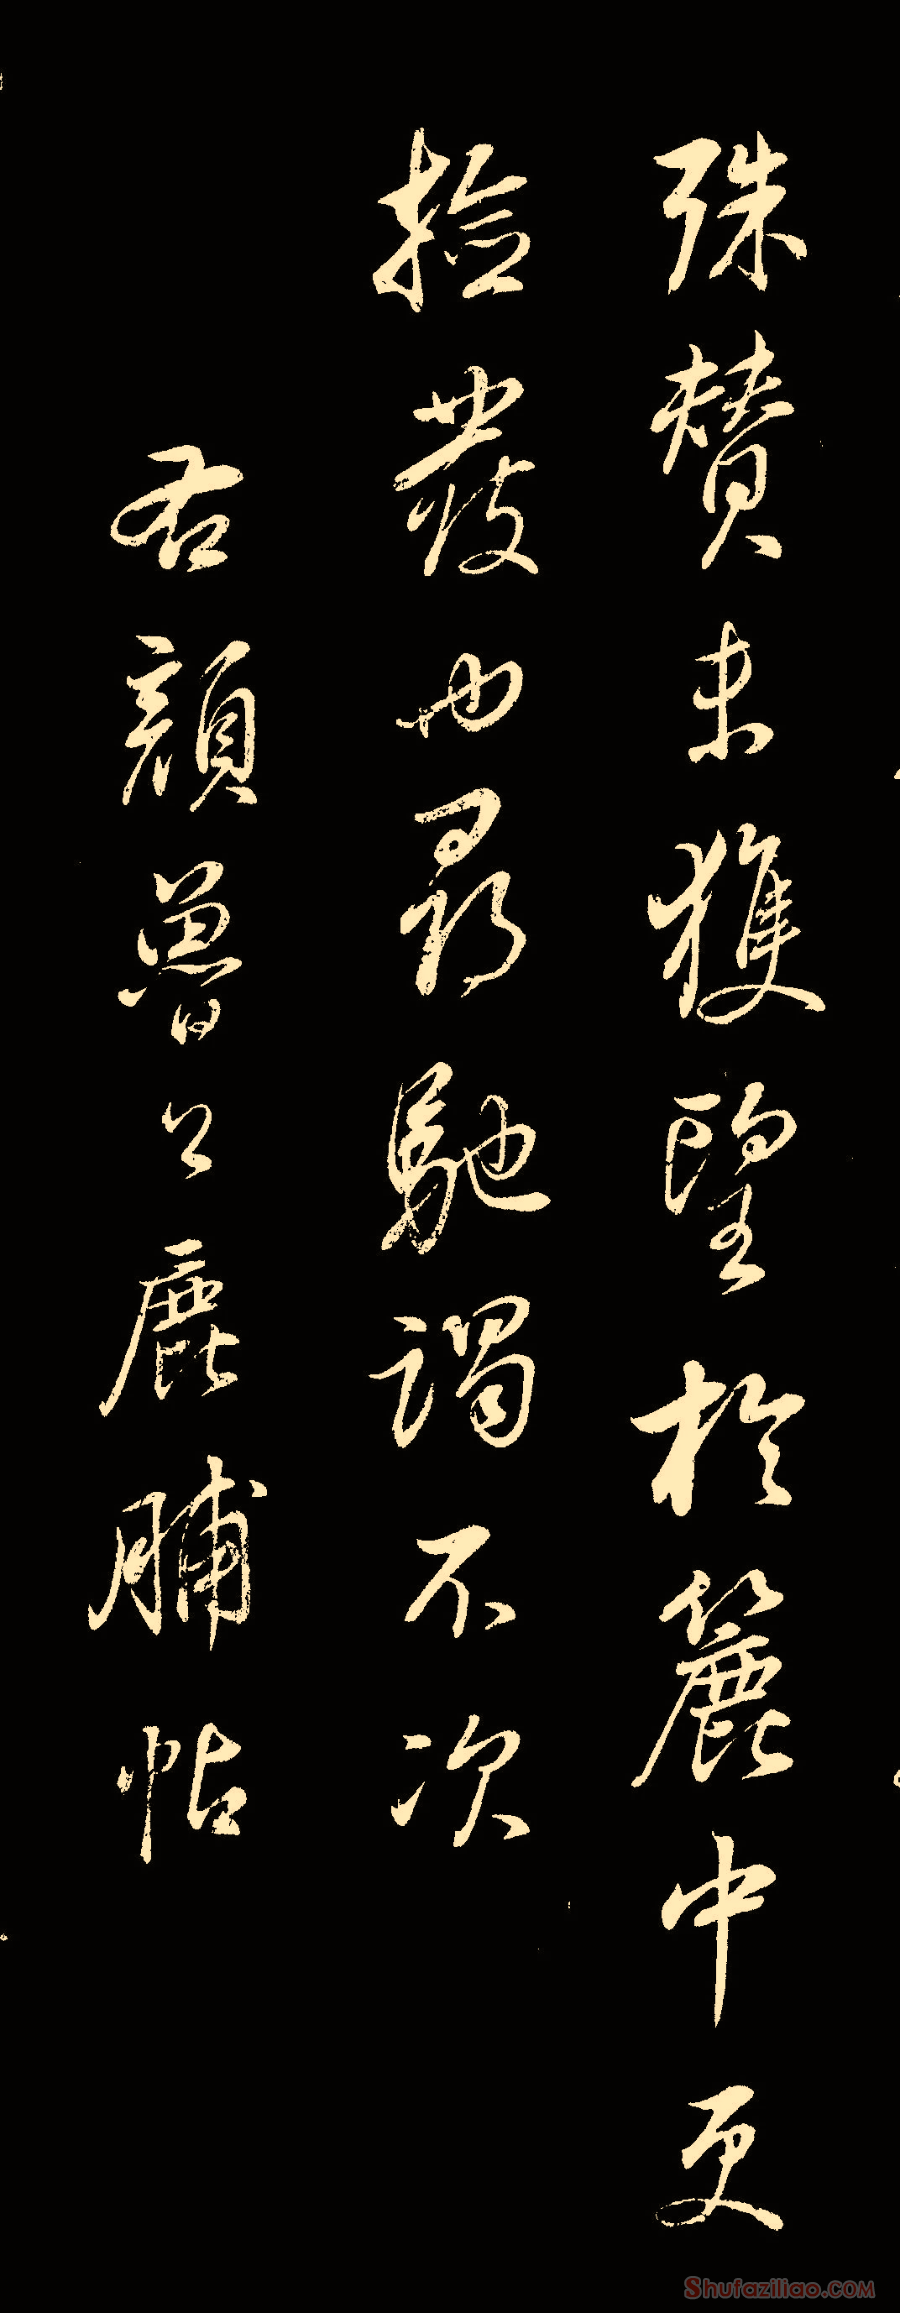 殊赞未獲望於簏中更
捡發也尋馳謁不次
右顔魯公鹿脯帖
Shufaziliao.COM